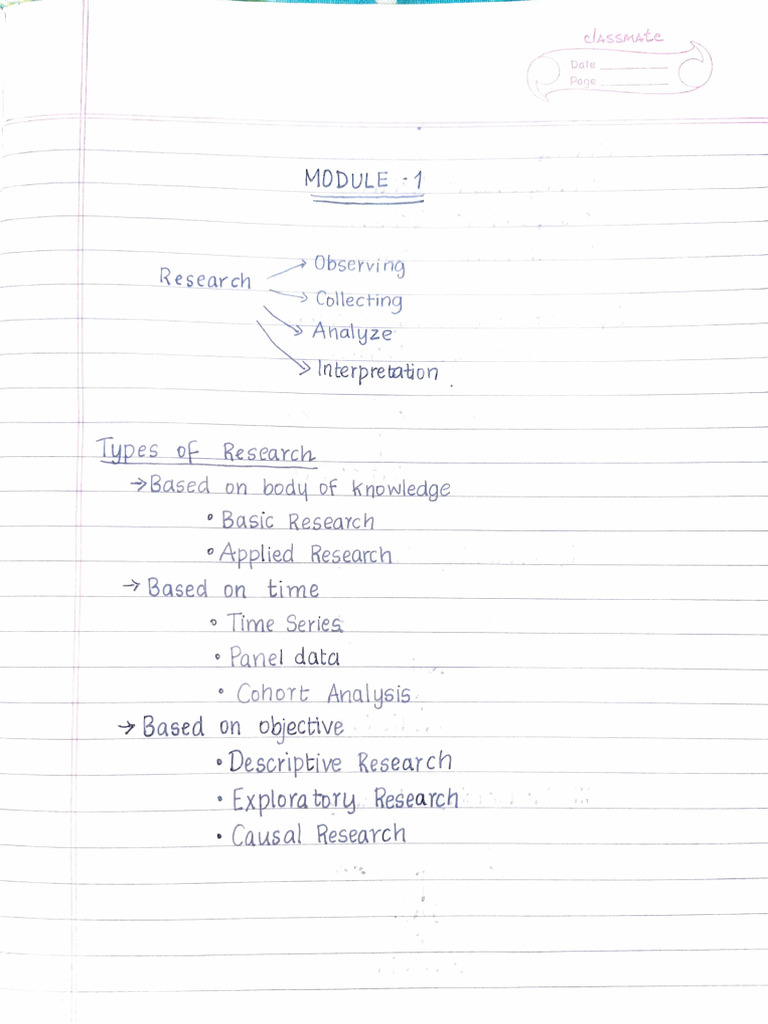 classmate
Date
Page
MODULE - 1
Research
→ Observing
→ Collecting
→ Analyze
→ Interpretation.
Types of Research
→ Based on body of knowledge
• Basic Research
• Applied Research
→ Based on time
• Time Series
• Panel data
• Cohort Analysis
→ Based on objective
• Descriptive Research
• Exploratory Research
• Causal Research